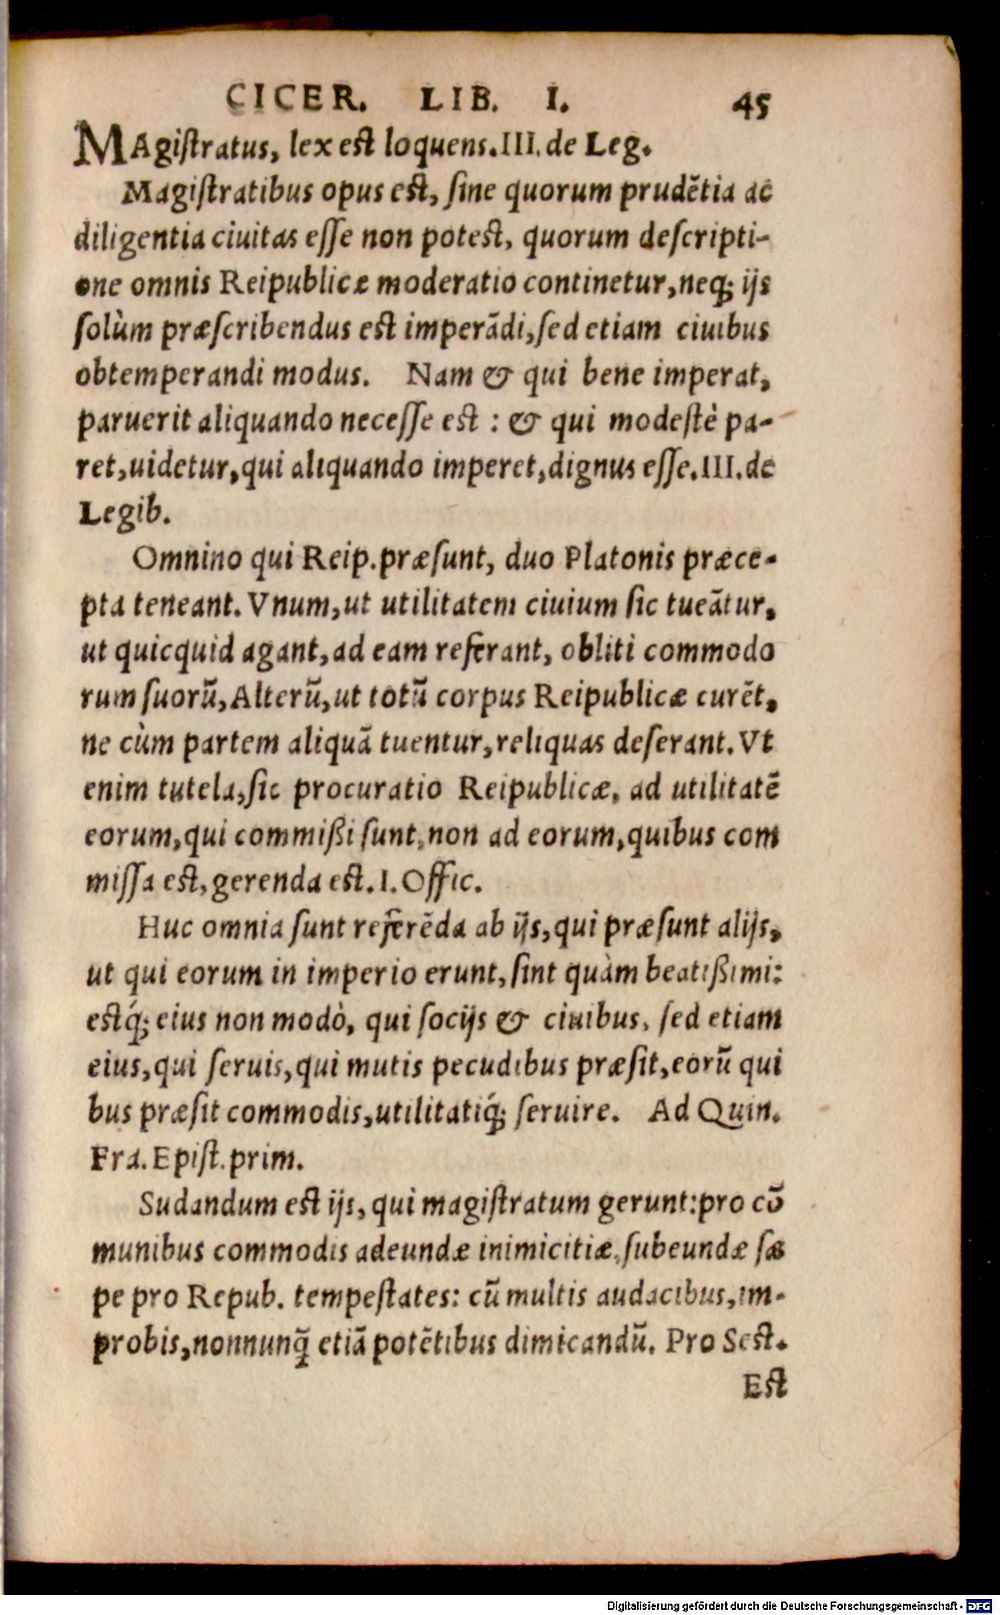 CICER. LIB. I. 45
MAgiſtratus, lex eſt loquens. III. de Leg.
Magiſtratibus opus eſt, ſine quorum prudẽtia ac
diligentia ciuitas eſſe non poteſt, quorum deſcripti-
one omnis Reipublicæ moderatio continetur, neq; ijs
ſolùm præſcribendus eſt imperãdi, ſed etiam ciuibus
obtemperandi modus. Nam & qui bene imperat,
paruerit aliquando neceſſe eſt : & qui modeſtè pa-
ret, uidetur, qui aliquando imperet, dignus eſſe. III. de
Legib.
Omnino qui Reip. præſunt, duo Platonis præce-
pta teneant. Vnum, ut utilitatem ciuium ſic tueãtur,
ut quicquid agant, ad eam referant, obliti commodo
rum ſuorũ, Alterũ, ut totũ corpus Reipublicæ curẽt,
ne cùm partem aliquã tuentur, reliquas deſerant. Vt
enim tutela, ſic procuratio Reipublicæ, ad utilitatẽ
eorum, qui commißi ſunt, non ad eorum, quibus com
miſſa eſt, gerenda eſt. I. Offic.
Huc omnia ſunt referẽda ab ijs, qui præſunt alijs,
ut qui eorum in imperio erunt, ſint quàm beatißimi:
eſtq́; eius non modò, qui ſocijs & ciuibus, ſed etiam
eius, qui ſeruis, qui mutis pecudibus præſit, eorũ qui
bus præſit commodis, utilitatiq́; ſeruire. Ad Quin.
Fra. Epiſt. prim.
Sudandum eſt ijs, qui magiſtratum gerunt: pro cõ
munibus commodis adeundæ inimicitiæ, ſubeundæ ſæ
pe pro Repub. tempeſtates: cũ multis audacibus, im-
probis, nonnunq̃ etiã potẽtibus dimicandũ. Pro Seſt.
Eſt
Digitalisierung gefördert durch die Deutsche Forschungsgemeinschaft - DFG